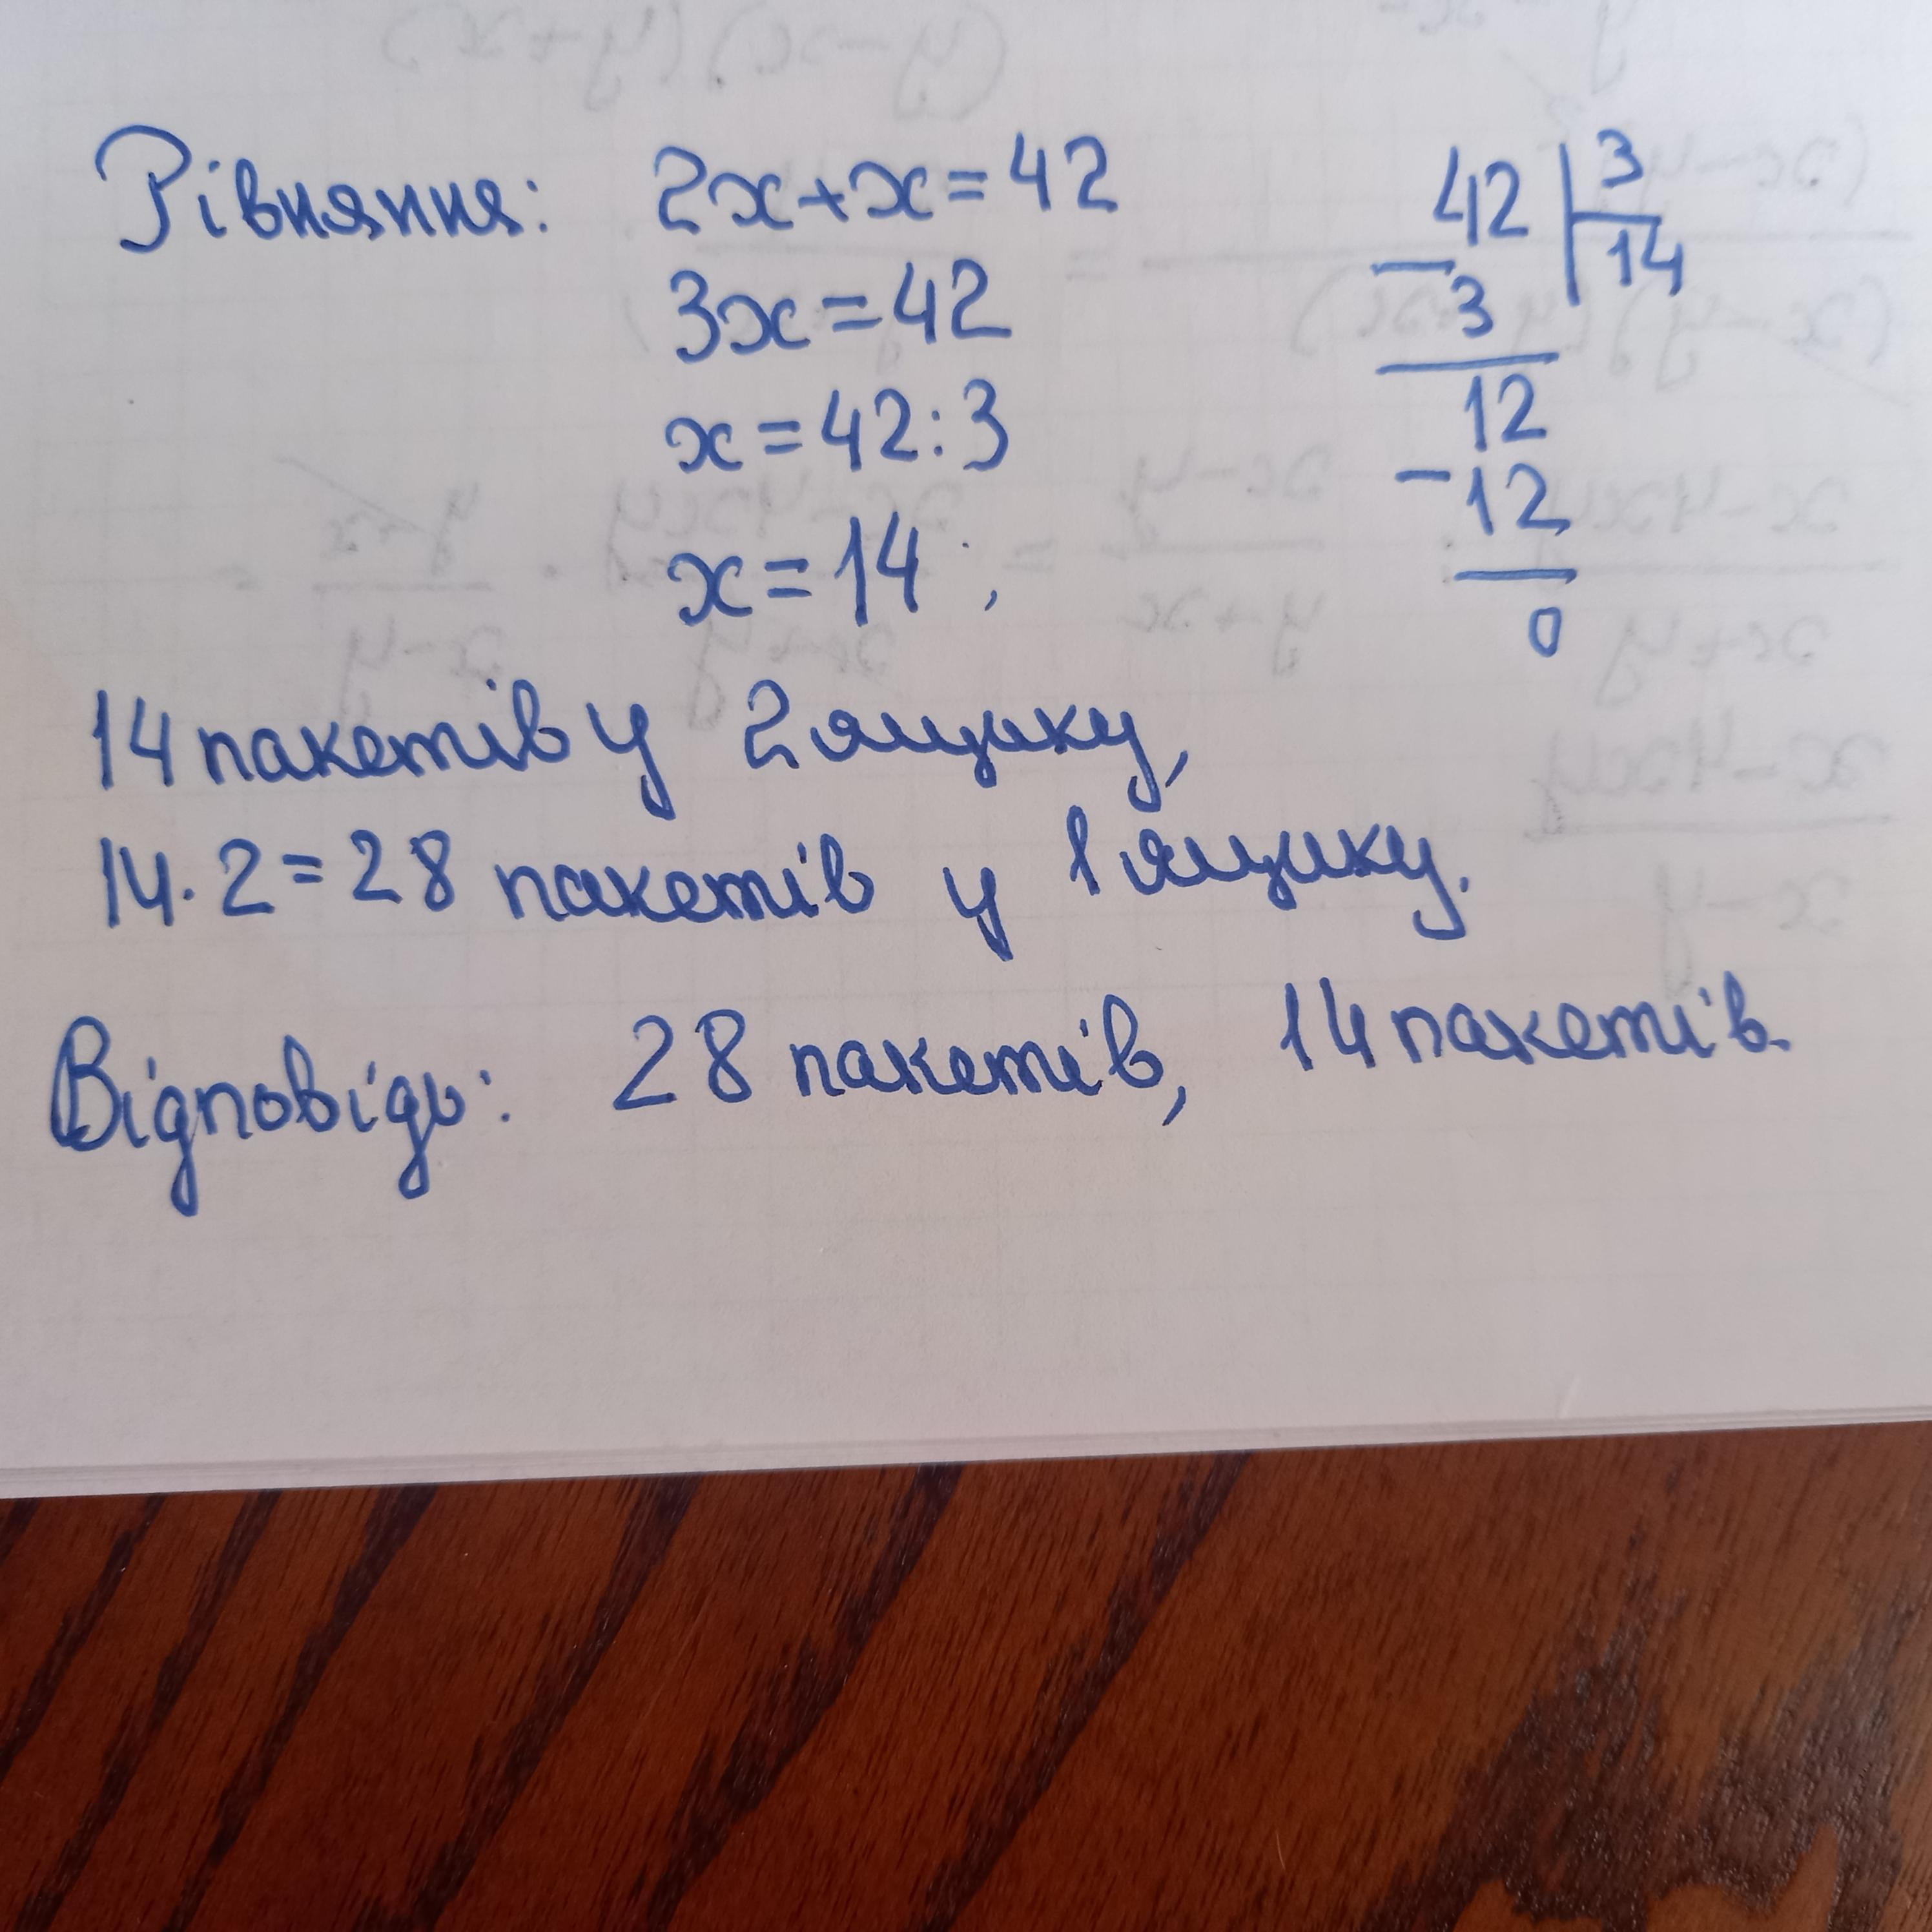 Рівняння: 2x+x=42
3x=42
x=42:3
x=14;
42 | 3
14
- 3
12
- 12
0
14 пакетів у 2 ящику,
14·2=28 пакетів у 1 ящику.
Відповідь: 28 пакетів, 14 пакетів.